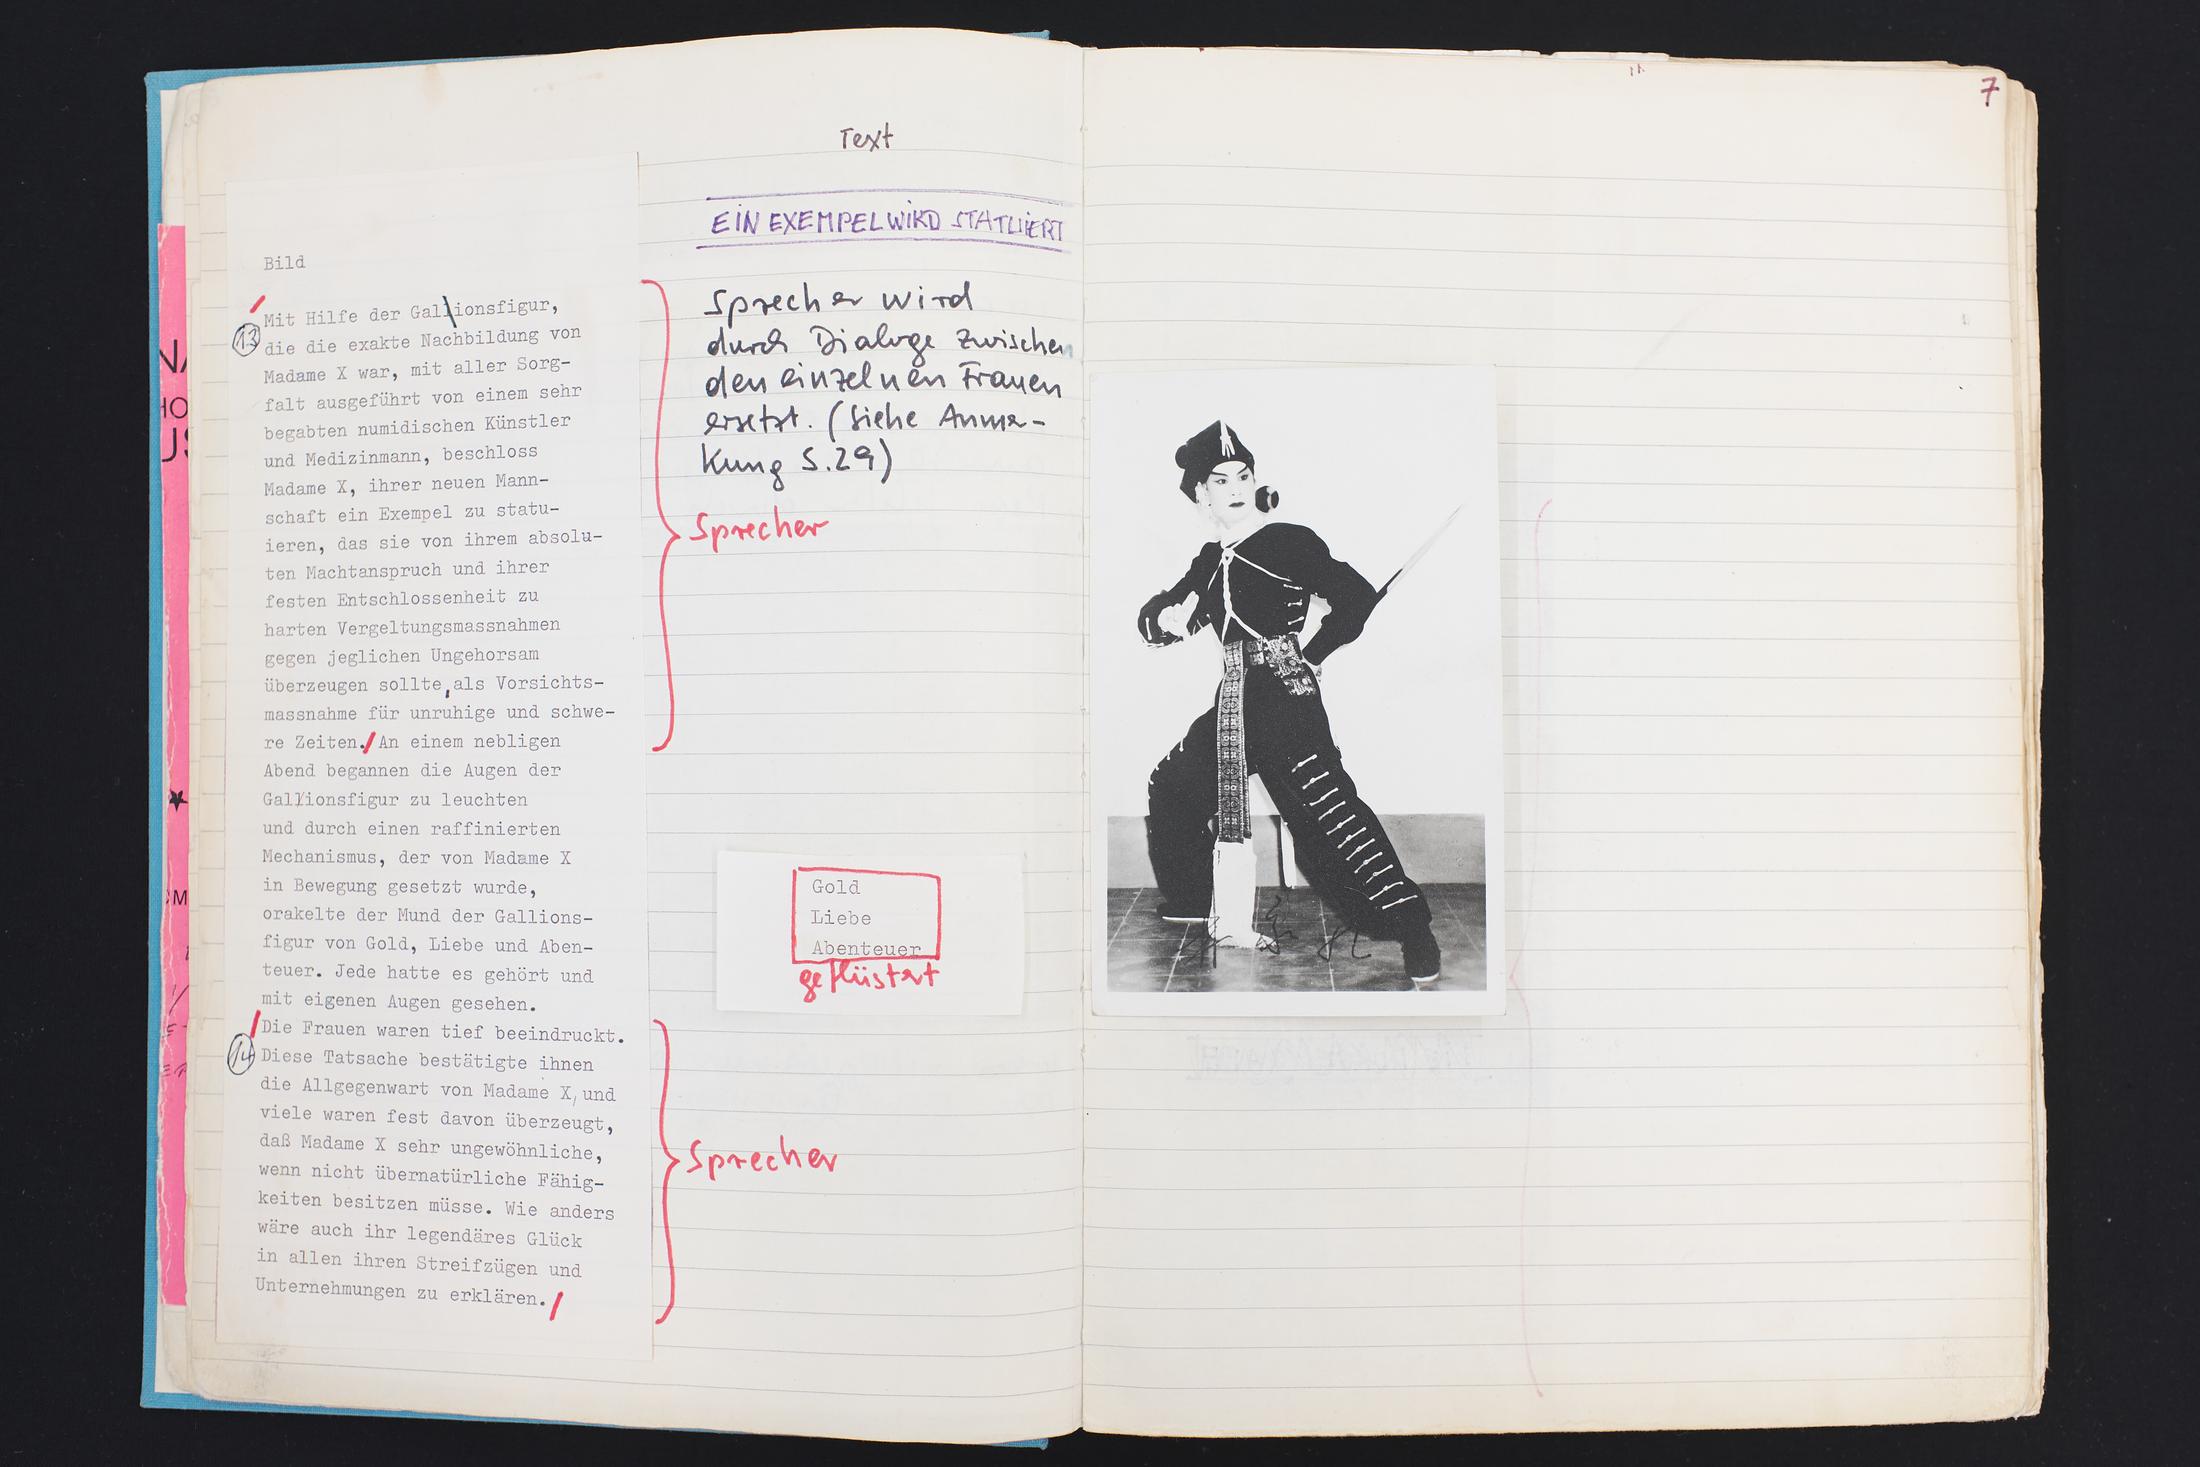 7
Text
EIN EXEMPEL WIRD STATUIERT
Bild
Mit Hilfe der Gallionsfigur,
13
die die exakte Nachbildung von
Madame X war, mit aller Sorg-
falt ausgeführt von einem sehr
begabten numidischen Künstler
und Medizinmann, beschloss
Madame X, ihrer neuen Mann-
schaft ein Exempel zu statu-
ieren, das sie von ihrem absolu-
ten Machtanspruch und ihrer
festen Entschlossenheit zu
harten Vergeltungsmassnahmen
gegen jeglichen Ungehorsam
überzeugen sollte, als Vorsichts-
massnahme für unruhige und schwe-
re Zeiten./ An einem nebligen
Abend begannen die Augen der
Gallionsfigur zu leuchten
und durch einen raffinierten
Mechanismus, der von Madame X
in Bewegung gesetzt wurde,
orakelte der Mund der Gallions-
figur von Gold, Liebe und Aben-
teuer. Jede hatte es gehört und
mit eigenen Augen gesehen.
/Die Frauen waren tief beeindruckt.
14
Diese Tatsache bestätigte ihnen
die Allgegenwart von Madame X, und
viele waren fest davon überzeugt,
daß Madame X sehr ungewöhnliche,
wenn nicht übernatürliche Fähig-
keiten besitzen müsse. Wie anders
wäre auch ihr legendäres Glück
in allen ihren Streifzügen und
Unternehmungen zu erklären./
Sprecher wird
durch Dialoge zwischen
den einzelnen Frauen
ersetzt. (Siehe Anmer-
kung S.29)
Sprecher
Gold
Liebe
Abenteuer
geflüstert
Sprecher